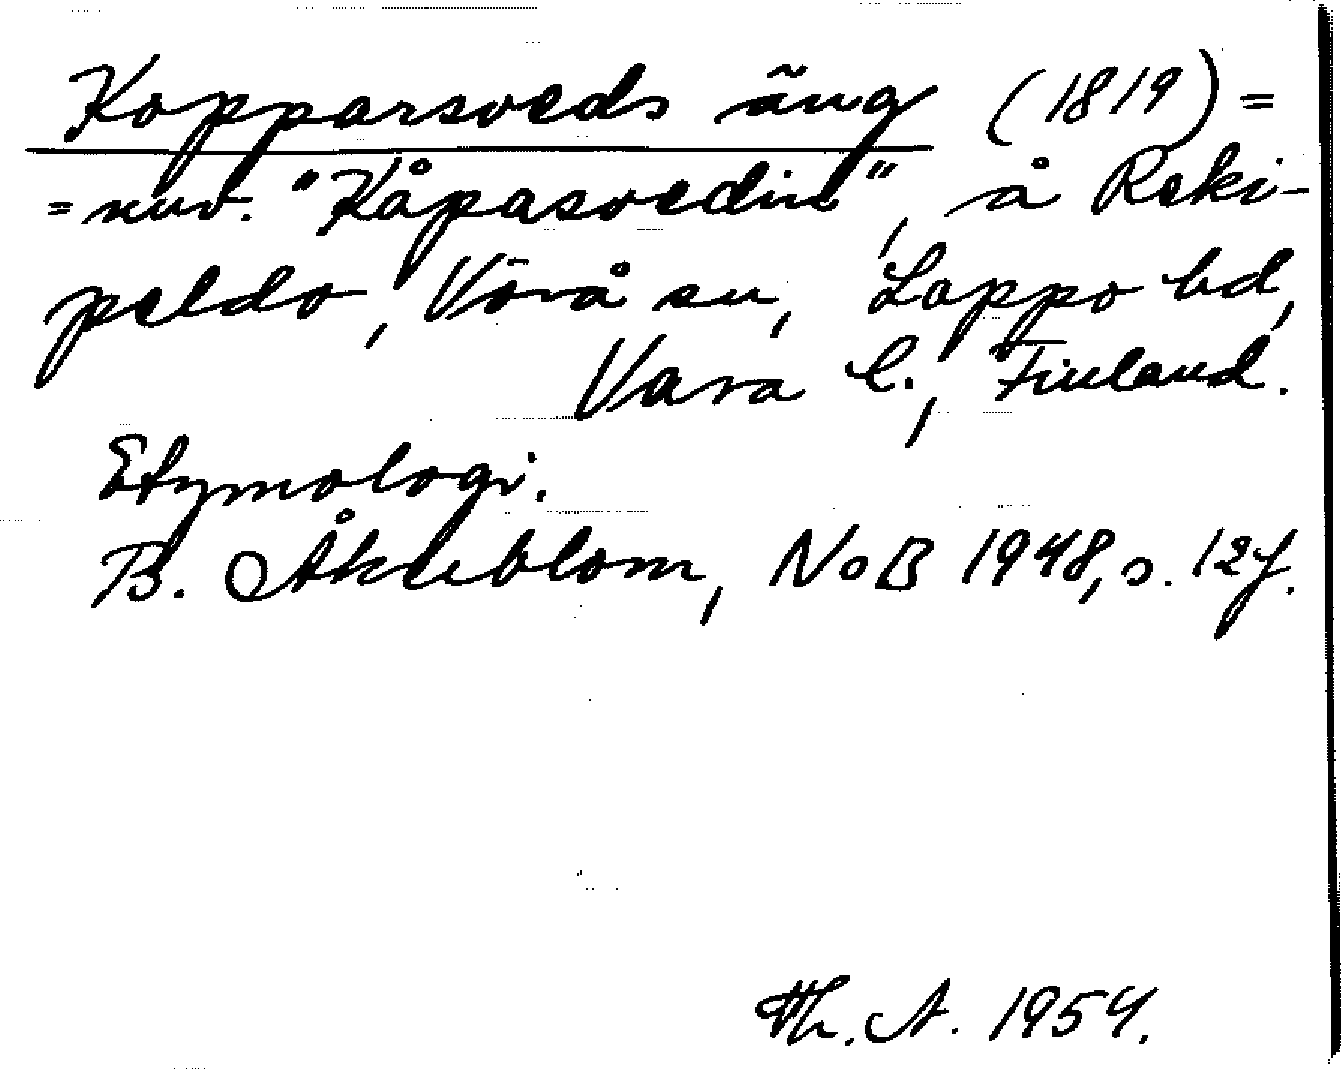 Kopparsveds äng (1819) =
= nuv. "Kåpasvedin", å Reki-
peldo, Vörå sn, Lappo hd,
Vasa l., Finland.
Etymologi.
B. Åkerblom, NoB 1948, s. 12f.
Th. A. 1954.